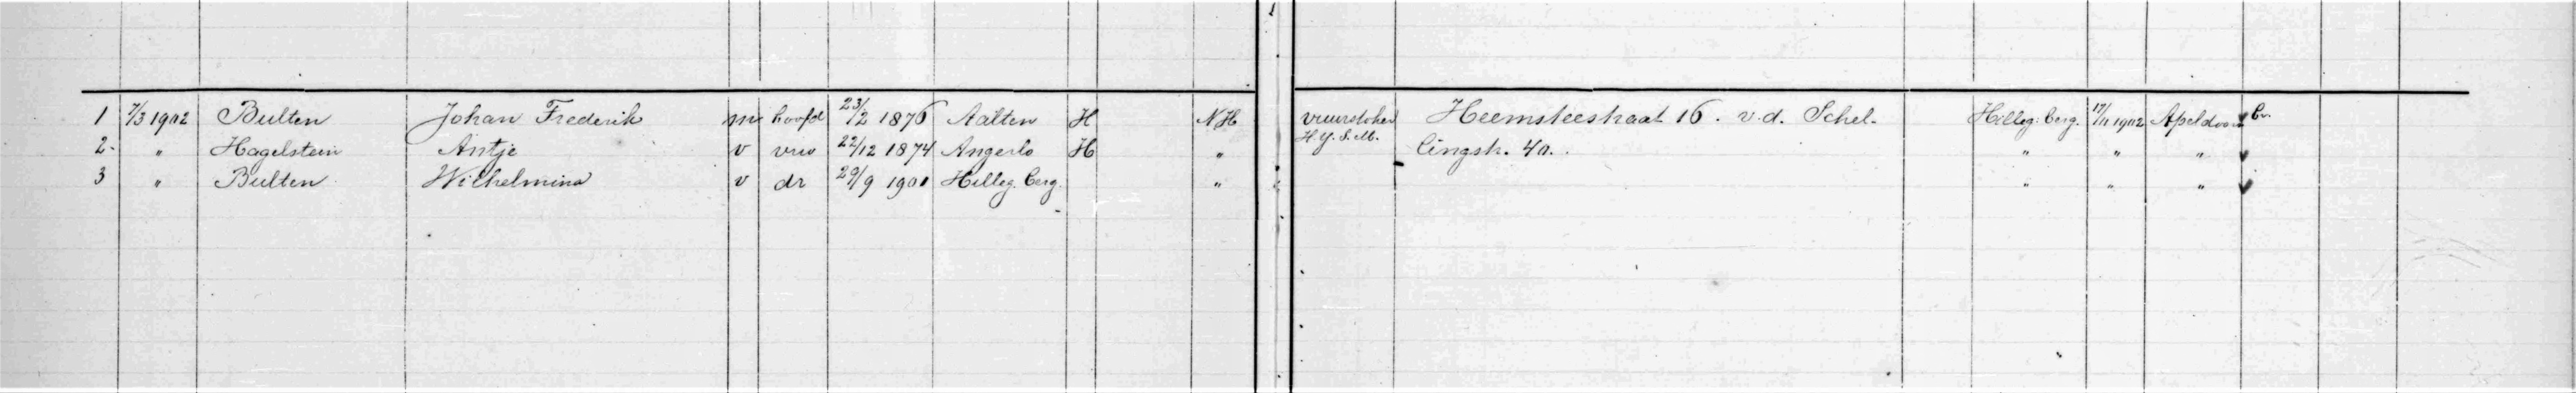 1 7/3 1902 Bulten Johan Frederik m hoofd 23/2 1876 Aalten H NH vuurstoker Heemsteestraat 16. v.d. Schel- Hilleg. berg. 17/11 1902 Apeldoorn
H.Y.S.M.
2 " Hagelstein Antje v vrw 22/12 1874 Angerlo H " lingstr. 40. " " "
3 " Bulten Wilhelmina v dr 29/9 1901 Hilleg. berg. " " " "